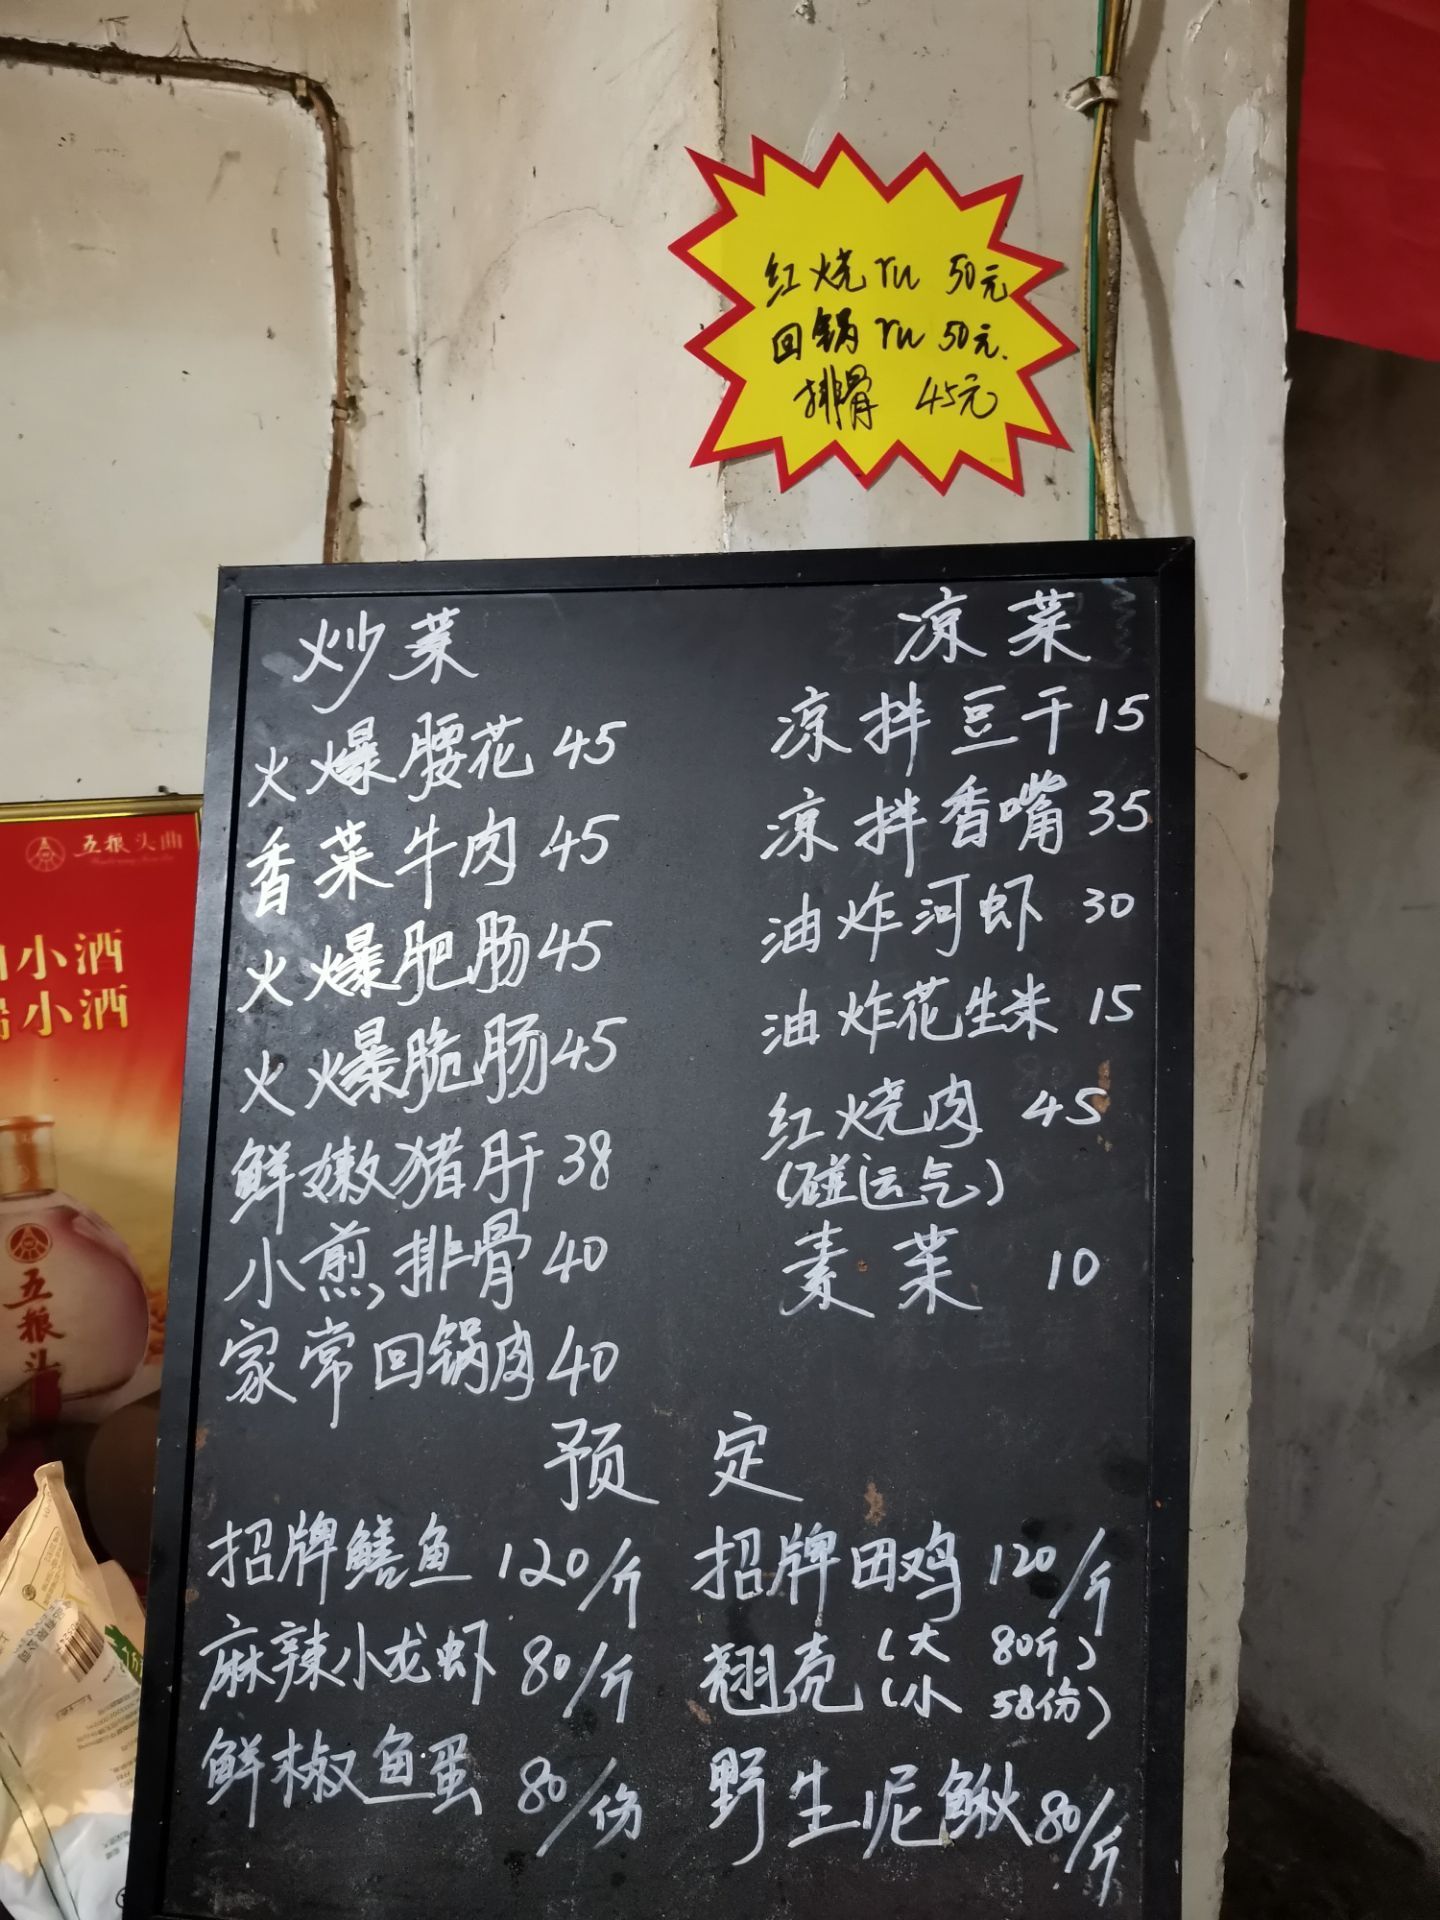 红烧ru 50元
回锅ru 50元.
排骨 45元
炒菜
火爆腰花 45
香菜牛肉 45
火爆肥肠 45
火爆脆肠 45
鲜嫩猪肝 38
小煎排骨 40
家常回锅肉 40
凉菜
凉拌豆干 15
凉拌香嘴 35
油炸河虾 30
油炸花生米 15
红烧肉 45
(碰运气)
素菜 10
预定
招牌鳝鱼 120/斤
麻辣小龙虾 80/斤
鲜椒鱼蛋 80/份
招牌田鸡 120/斤
翘壳 (大 80斤)
(小 58份)
野生泥鳅 80/斤
五粮头曲
小酒
小酒
五粮头